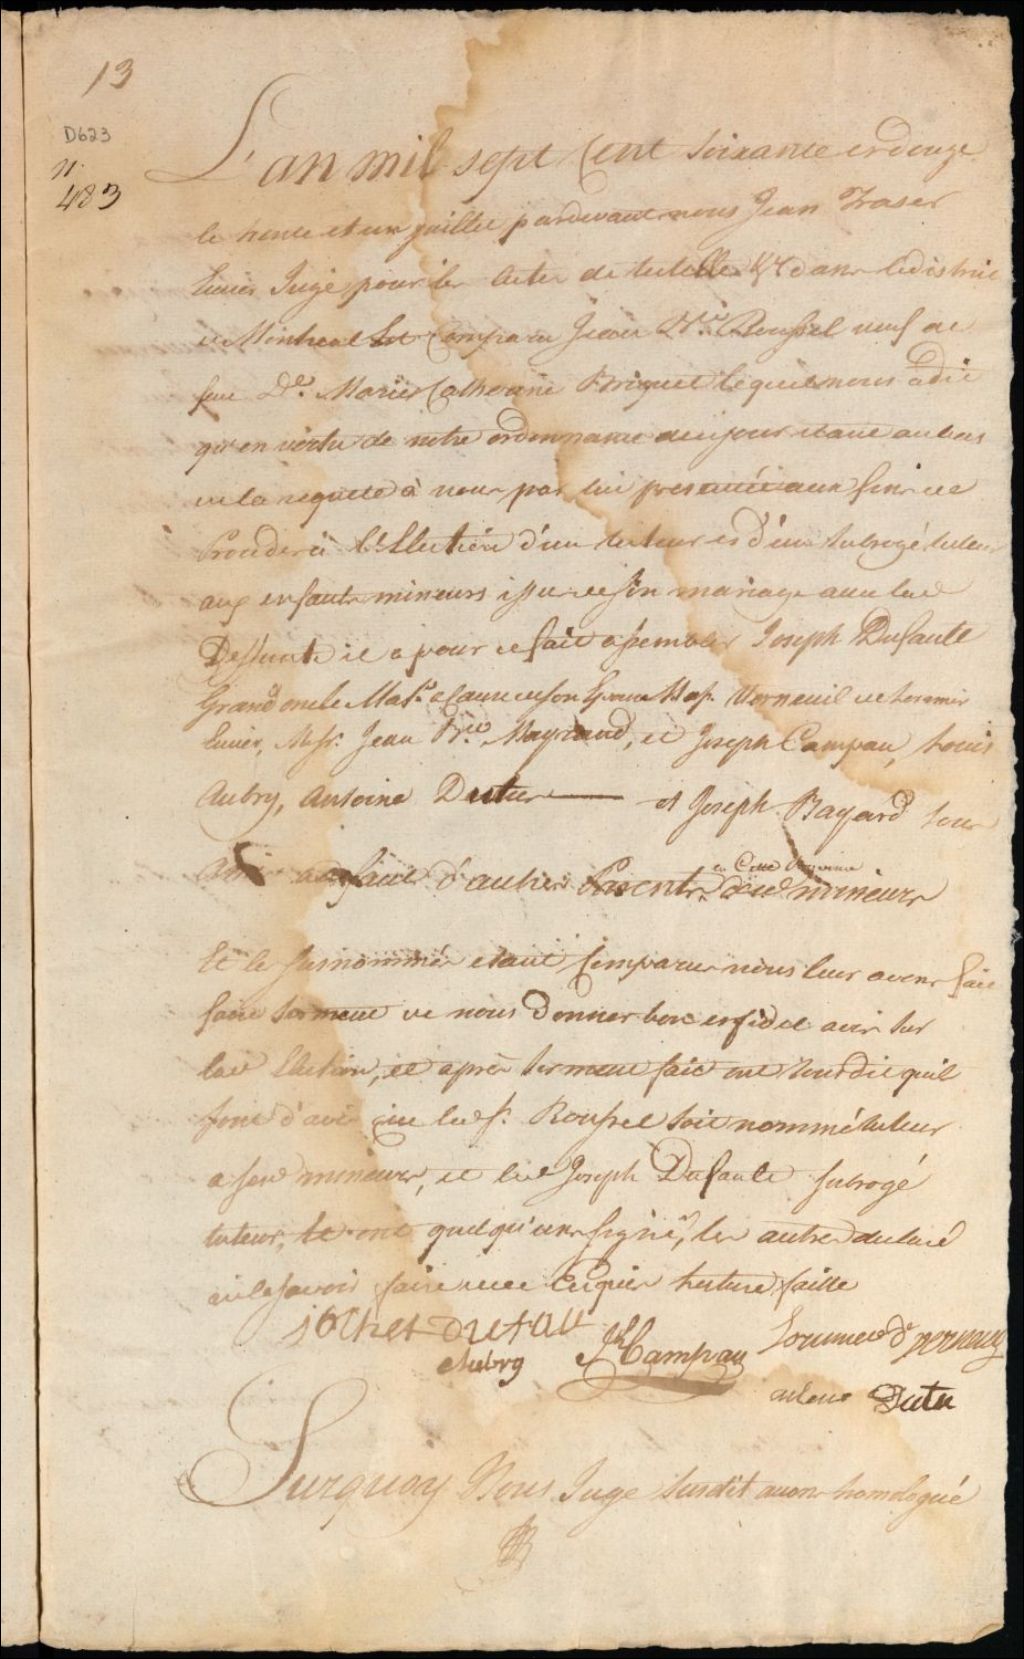 13
D623
N
483
L'an mil sept Cent soixante et douze
le trente et un juillet pardevant nous Jean Fraser
Ecuier Juge pour les Actes de tutelles &c dans le district
de Montreal Est Comparu Jean Bte Roussel veuf de
feue De. Marie Catherine Briquet lequel nous a dit
qu'en vertu de notre ordonnance de ce jour etant au bas
de la requete à nous par lui presentée aux fins de
Proceder à l'Election d'un tuteur et d'un subrogé tuteur
aux enfants mineurs issus de son mariage avec lad
Deffunte il a pour ce fait assembler Joseph Dufault
Grand oncle Mat. a Cause de son Epouse Verneuil de Lorimier
Ecuier, Messr. Jean Bte Maynaud, et Joseph Campau, Louis
Aubry, Antoine Dutu et Joseph Bayard tous
amis a defaut d'autres Parents en Cette Province desd mineurs
Et les susnommés etant Comparus nous leur avons fait
faire serment de nous Donner bon et fidel avis sur
lad Election, et après serment fait ont tous dit quil
sont d'avis que led Sr. Roussel soit nommé tuteur
a sesd mineurs, et led Joseph Dufault subrogé
tuteur, et ont quelqu'uns signé, les autres declaré
ne le savoir faire de ce Enquier lecture faitte
aubry JhCampau
Dutu
Surquoy Nous Juge susdit avons homologué